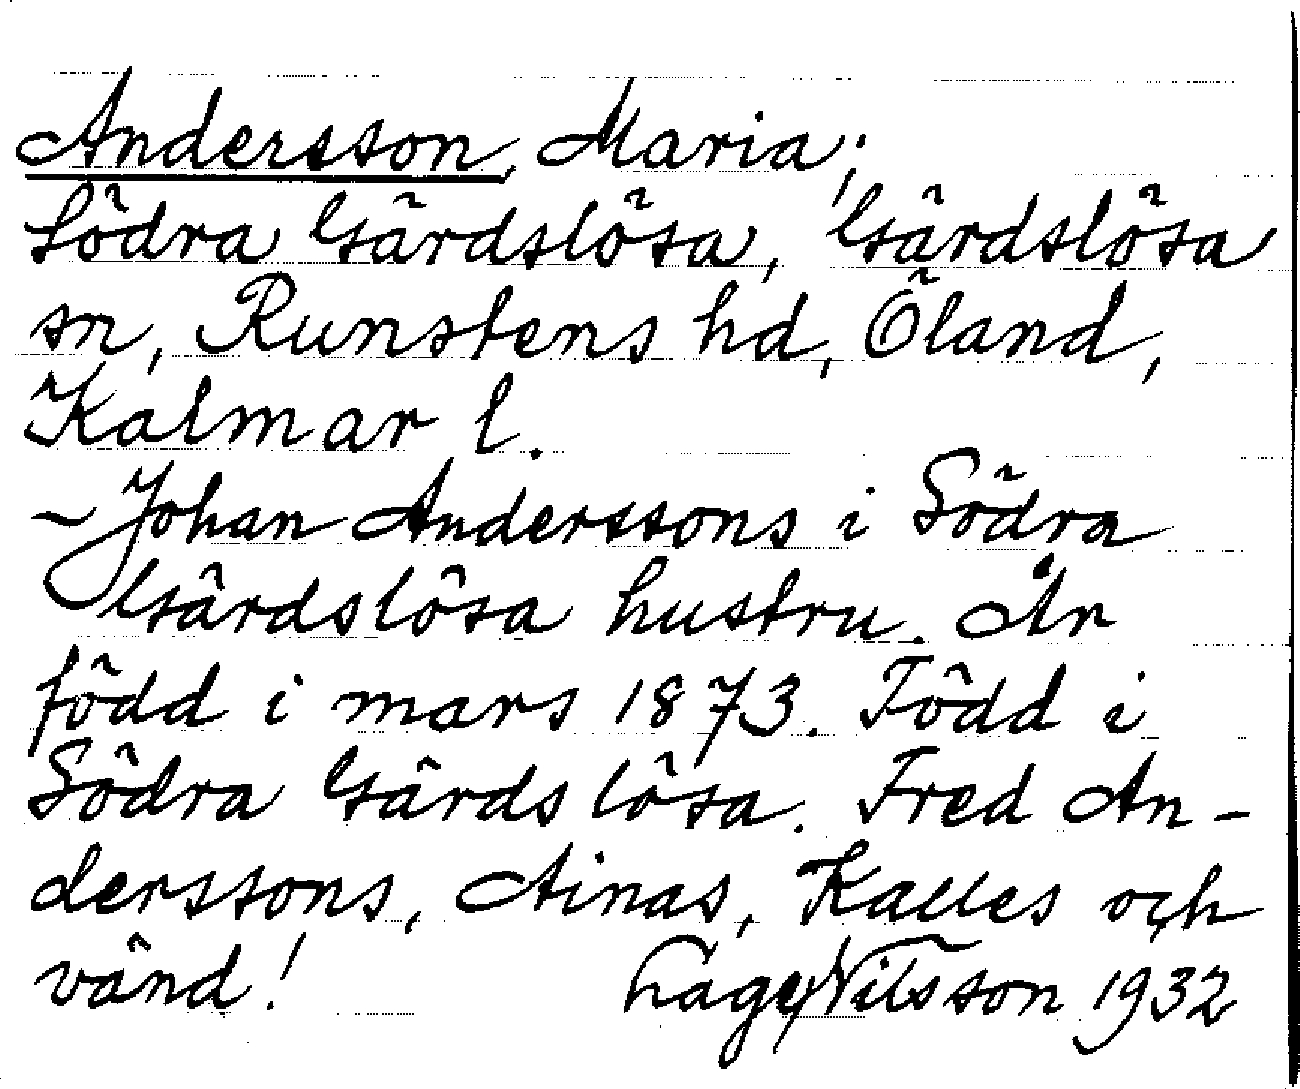 Andersson, Maria;
Södra Gärdslösa, Gärdslösa
sn, Runstens hd, Öland,
Kalmar l.
- Johan Anderssons i Södra
Gärdslösa hustru. Är
född i mars 1873. Född i
Södra Gärdslösa. Fred An-
derssons, Ainas, Kalles och
vänd! Hage Nilsson 1932